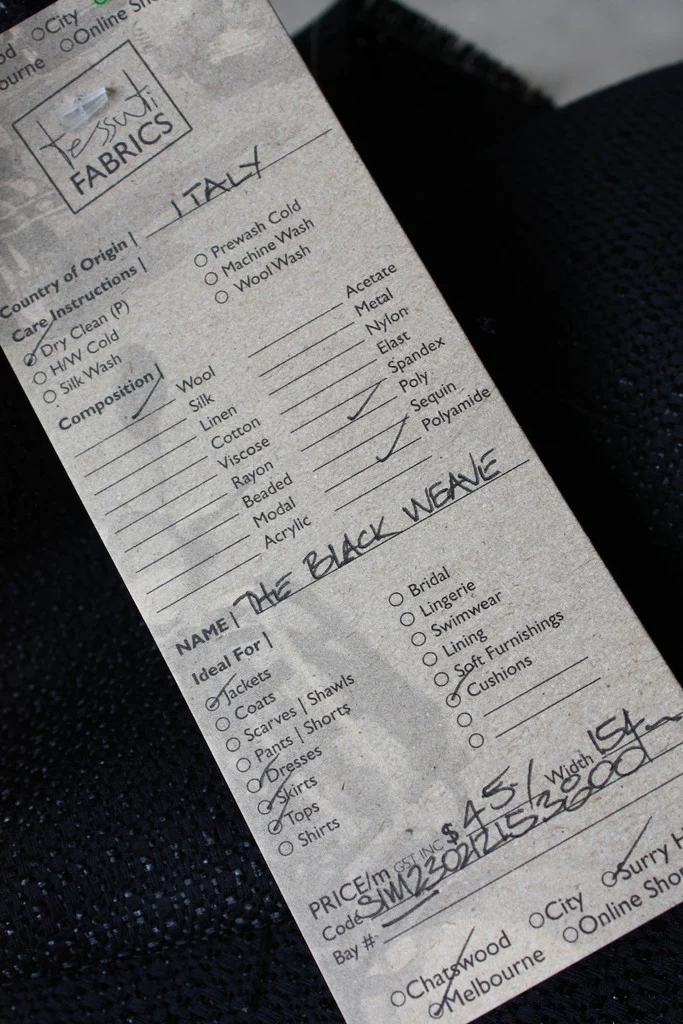 City
Online Sho
ourne
tessuti
FABRICS
Country of Origin | ITALY
Care Instructions |
Dry Clean (P)
H/W Cold
Silk Wash
Prewash Cold
Machine Wash
Wool Wash
Composition |
Wool
Silk
Linen
Cotton
Viscose
Rayon
Beaded
Modal
Acrylic
Acetate
Metal
Nylon
Elast
Spandex
Poly
Sequin
Polyamide
NAME | THE BLACK WEAVE
Ideal For |
Jackets
Coats
Scarves | Shawls
Pants | Shorts
Dresses
Skirts
Tops
Shirts
Bridal
Lingerie
Swimwear
Lining
Soft Furnishings
Cushions
PRICE/m GST INC $45/ Width 154
Code
Bay #
Chatswood
City
Surry H
Melbourne
Online Shop